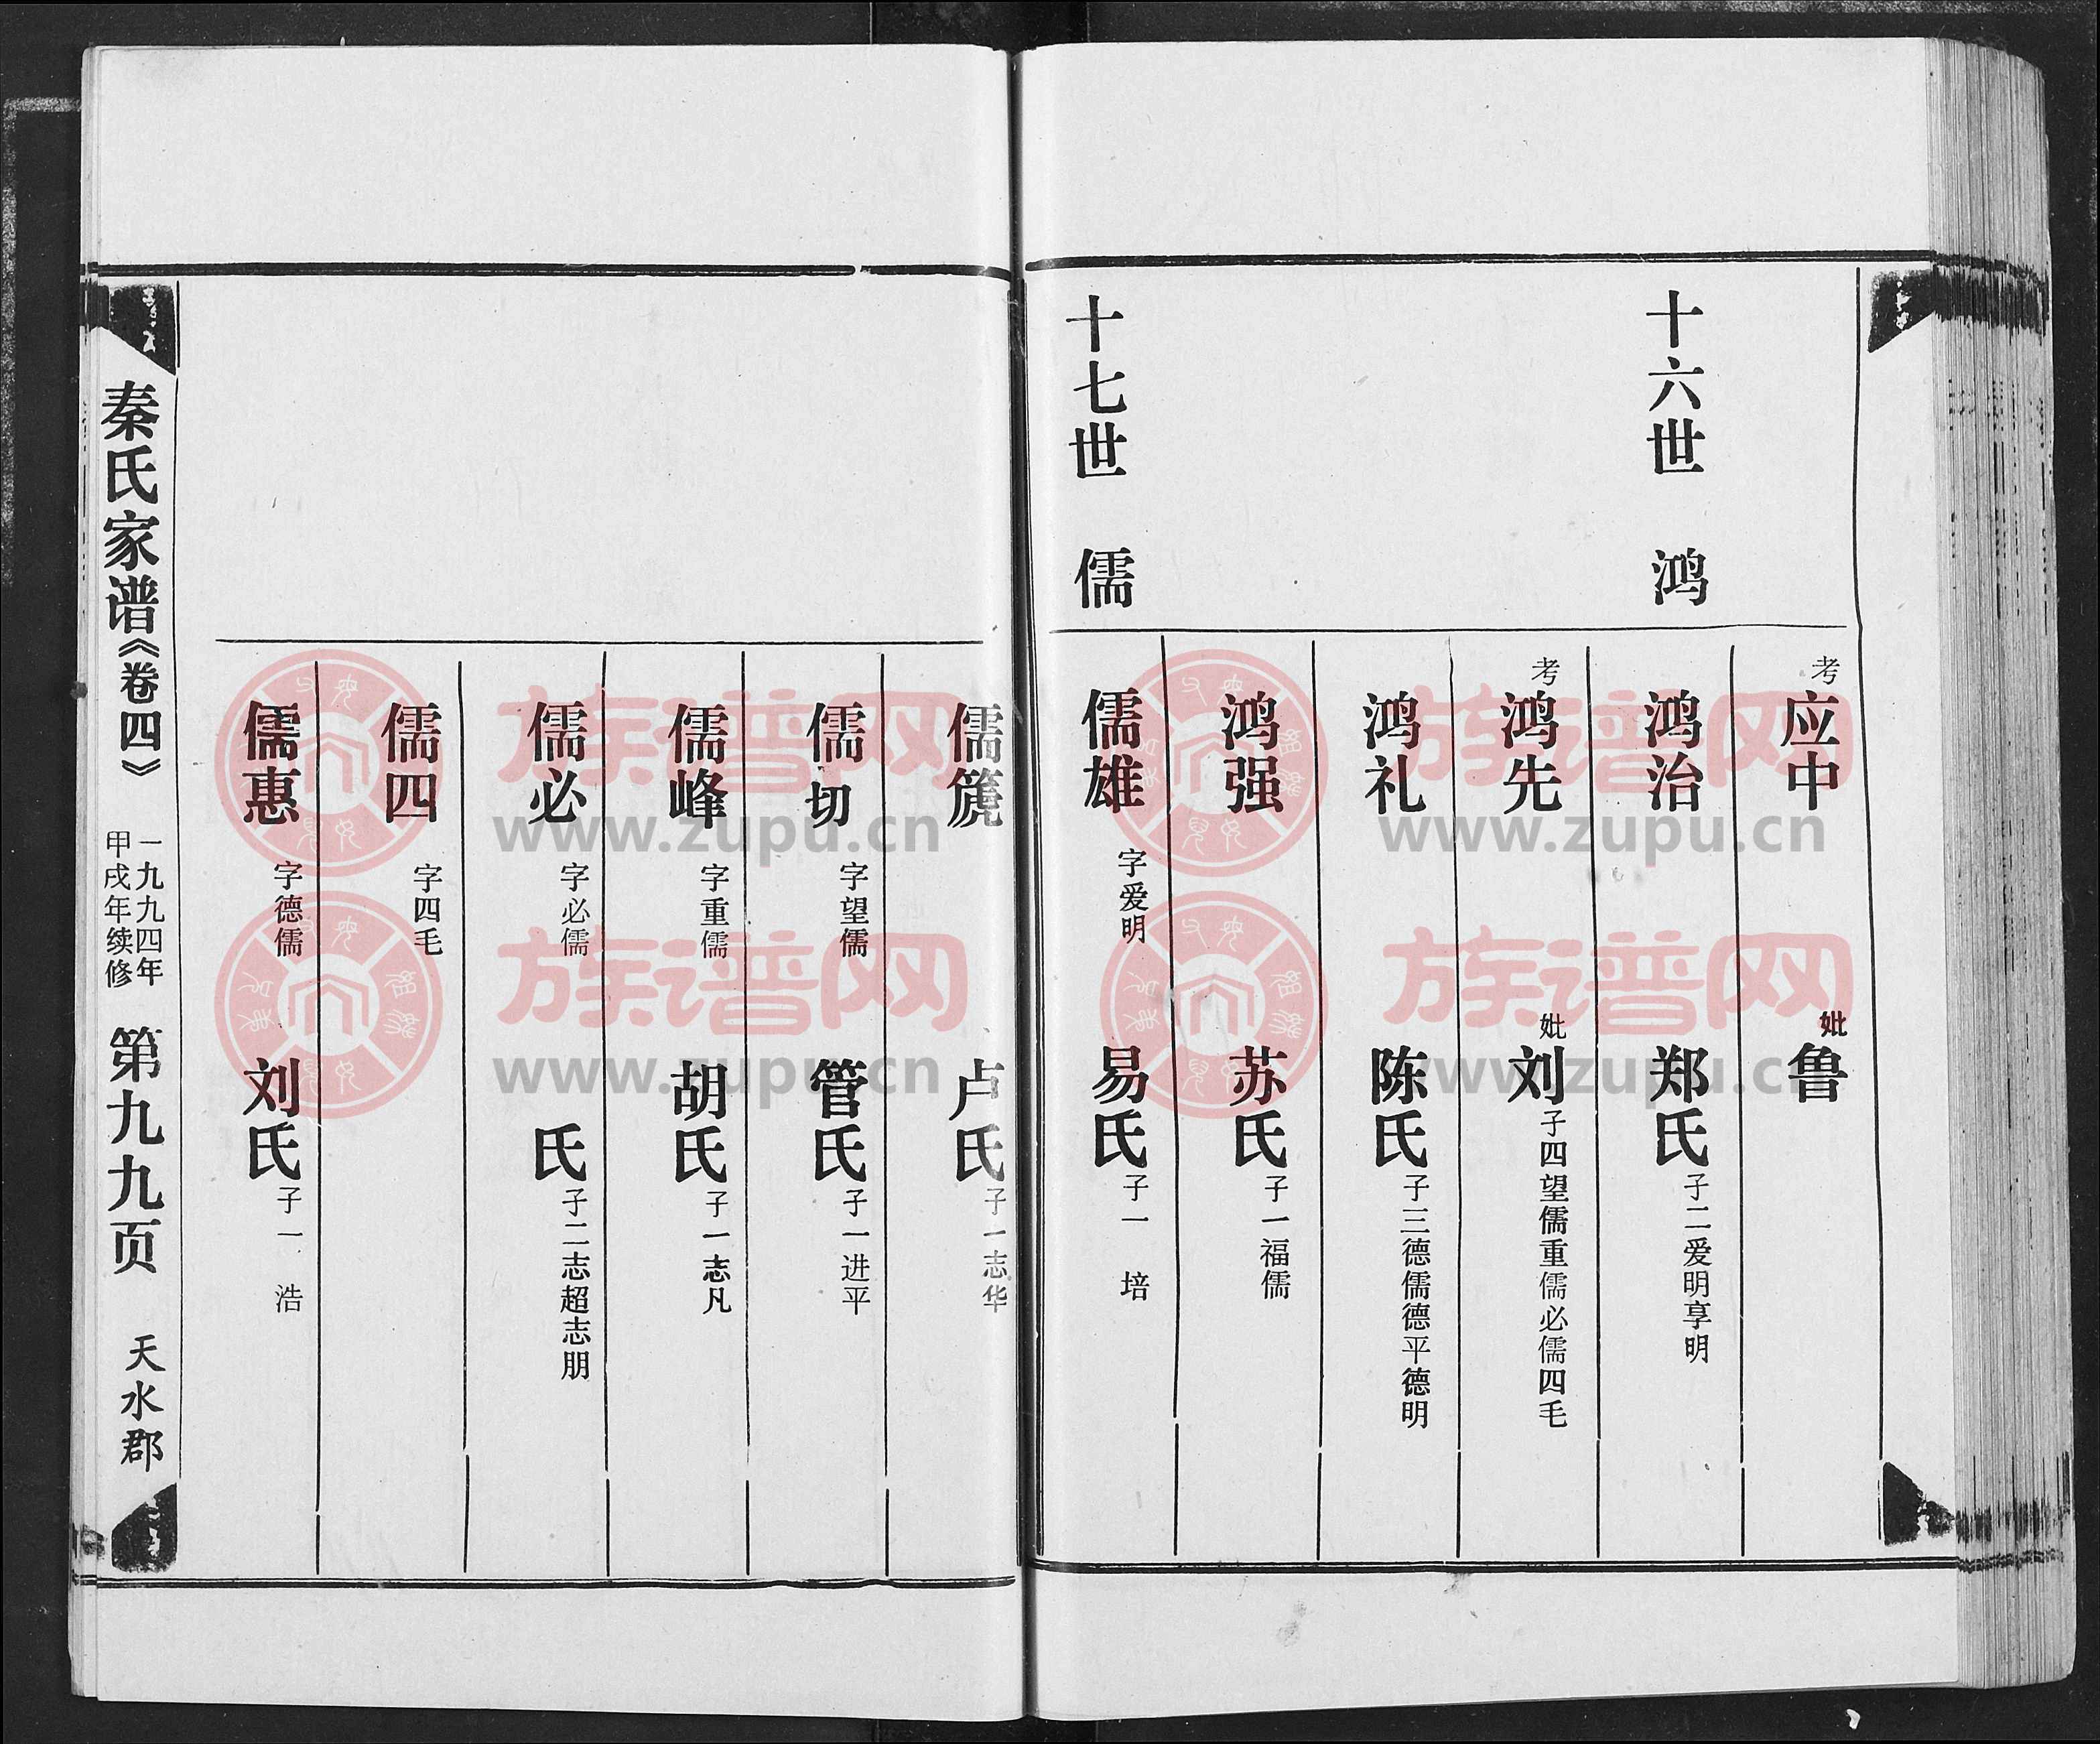 考应中 妣鲁
十六世 鸿
鸿治 郑氏 子二爱明享明
考鸿先 妣刘 子四望儒重儒必儒四毛
鸿礼 陈氏 子三德儒德平德明
鸿强 苏氏 子一福儒
十七世 儒
儒雄 字爱明 易氏 子一 培
儒篪 卢氏 子一志华
儒切 字望儒 管氏 子一进平
儒峰 字重儒 胡氏 子一志凡
儒必 字必儒 氏 子二志超志朋
儒四 字四毛
儒惠 字德儒 刘氏 子一 浩
秦氏家谱《卷四》
一九九四年
甲戌年续修
第九九页
天水郡
族谱网
www.zupu.cn
族谱网
www.zupu.cn
族谱网
www.zupu.cn
族谱网
www.zupu.cn